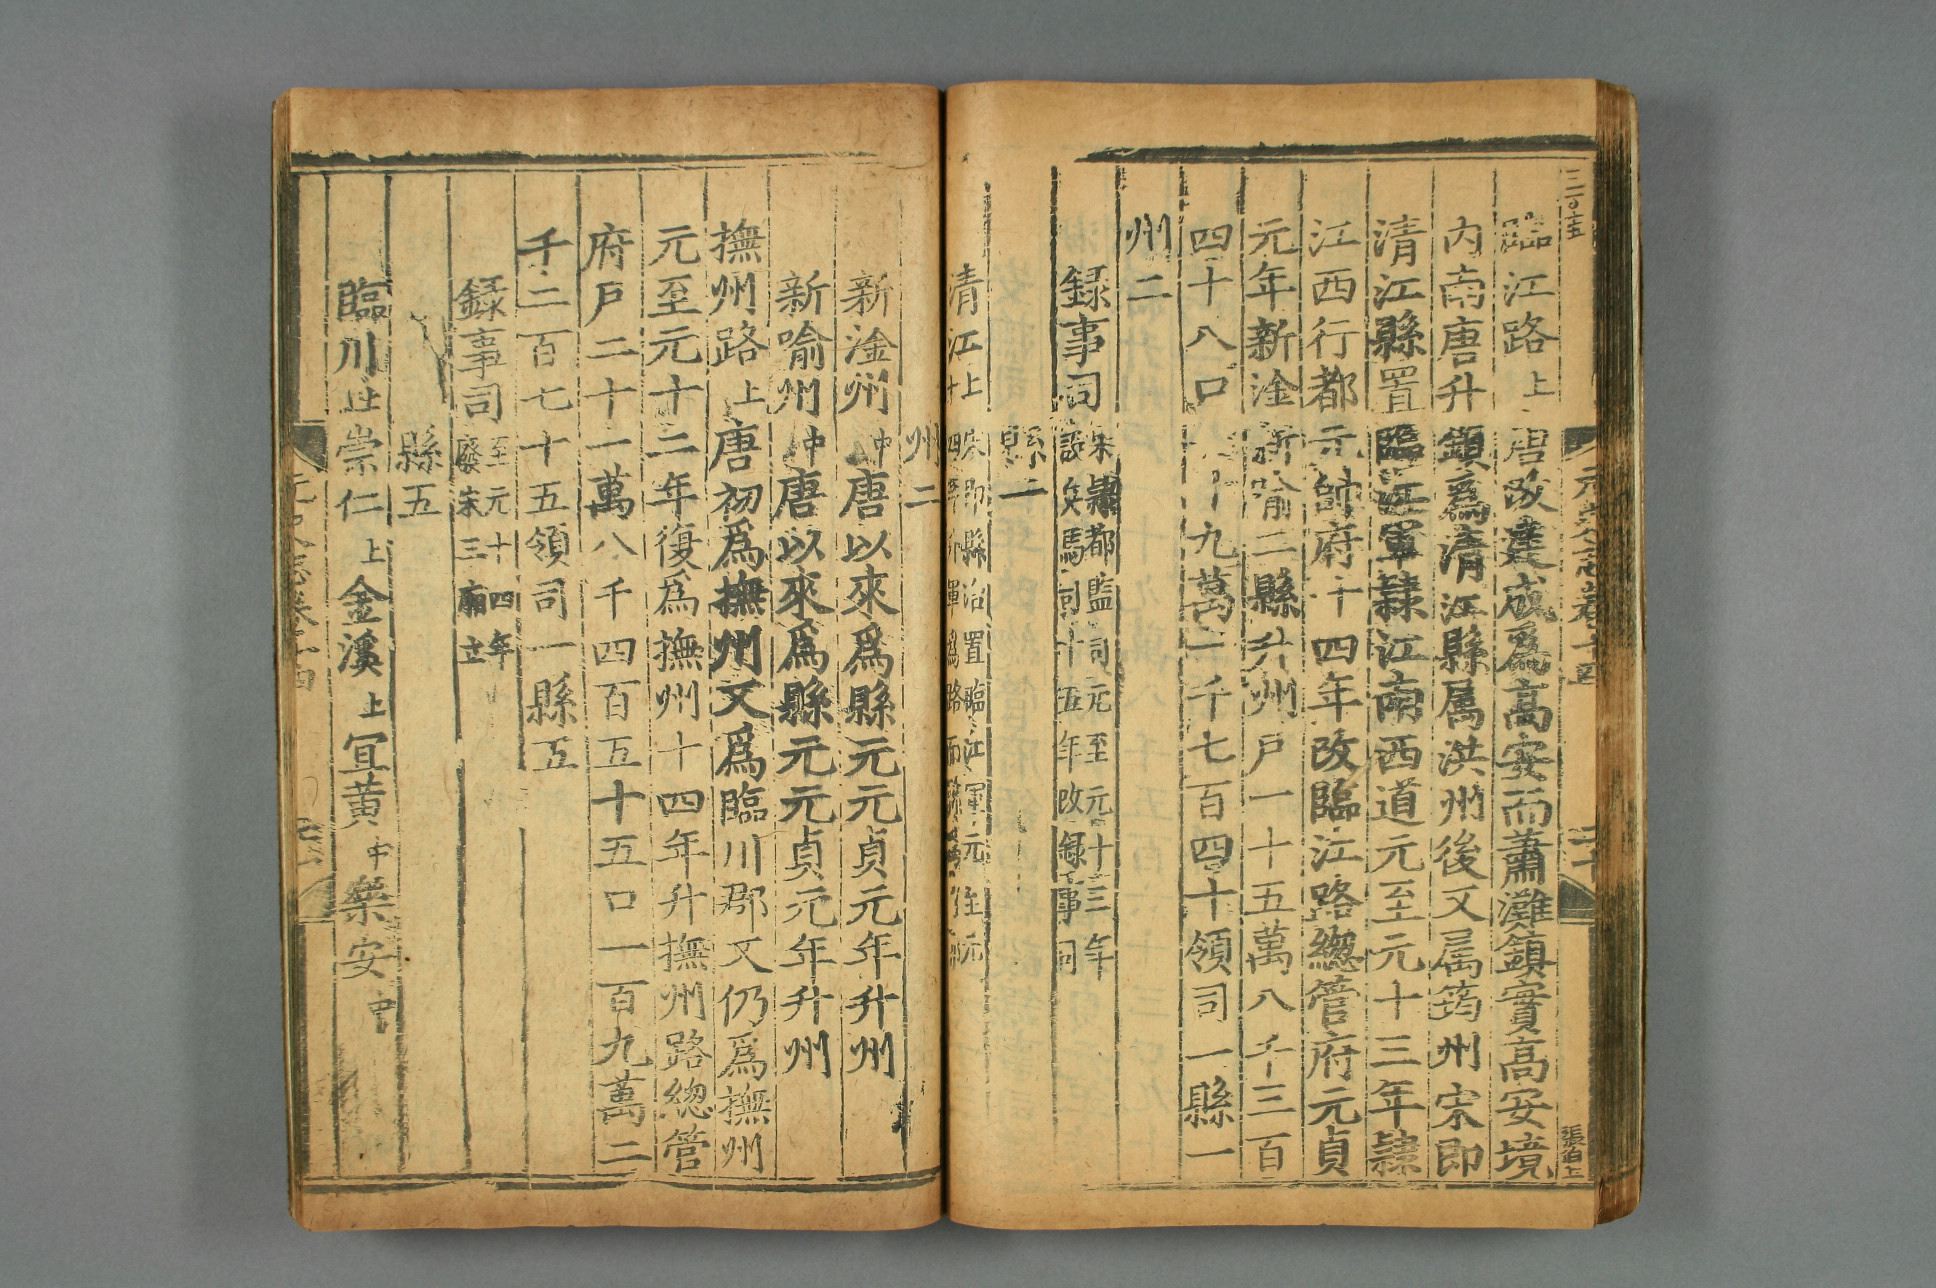 臨江路上唐改建成爲高安而蕭灘鎮實高安境
内南唐升鎮爲清江縣属洪州後又属筠州宋即
清江縣置臨江軍隷江南西道元至元十三年隷
江西行都元帥府十四年改臨江路總管府元貞
元年新淦新喻二縣升州戶一十五萬八千三百
四十八口 九萬二千七百四十領司一縣一
州二
録事司宋隷都監司元至元十三年
設兵馬司十五年改録事司
縣一
清江上宋即縣治置臨江軍元至元
十四年升軍爲路而縣
州二
新淦州中唐以來爲縣元元貞元年升州
新喻州中唐以來爲縣元元貞元年升州
撫州路上唐初爲撫州又爲臨川郡又仍爲撫州
元至元十二年復爲撫州十四年升撫州路總管
府戶二十一萬八千四百五十五口一百九萬二
千二百七十五領司一縣五
録事司至元十四年
廢宋三廂立
縣五
臨川上崇仁上金溪上宜黄中樂安中